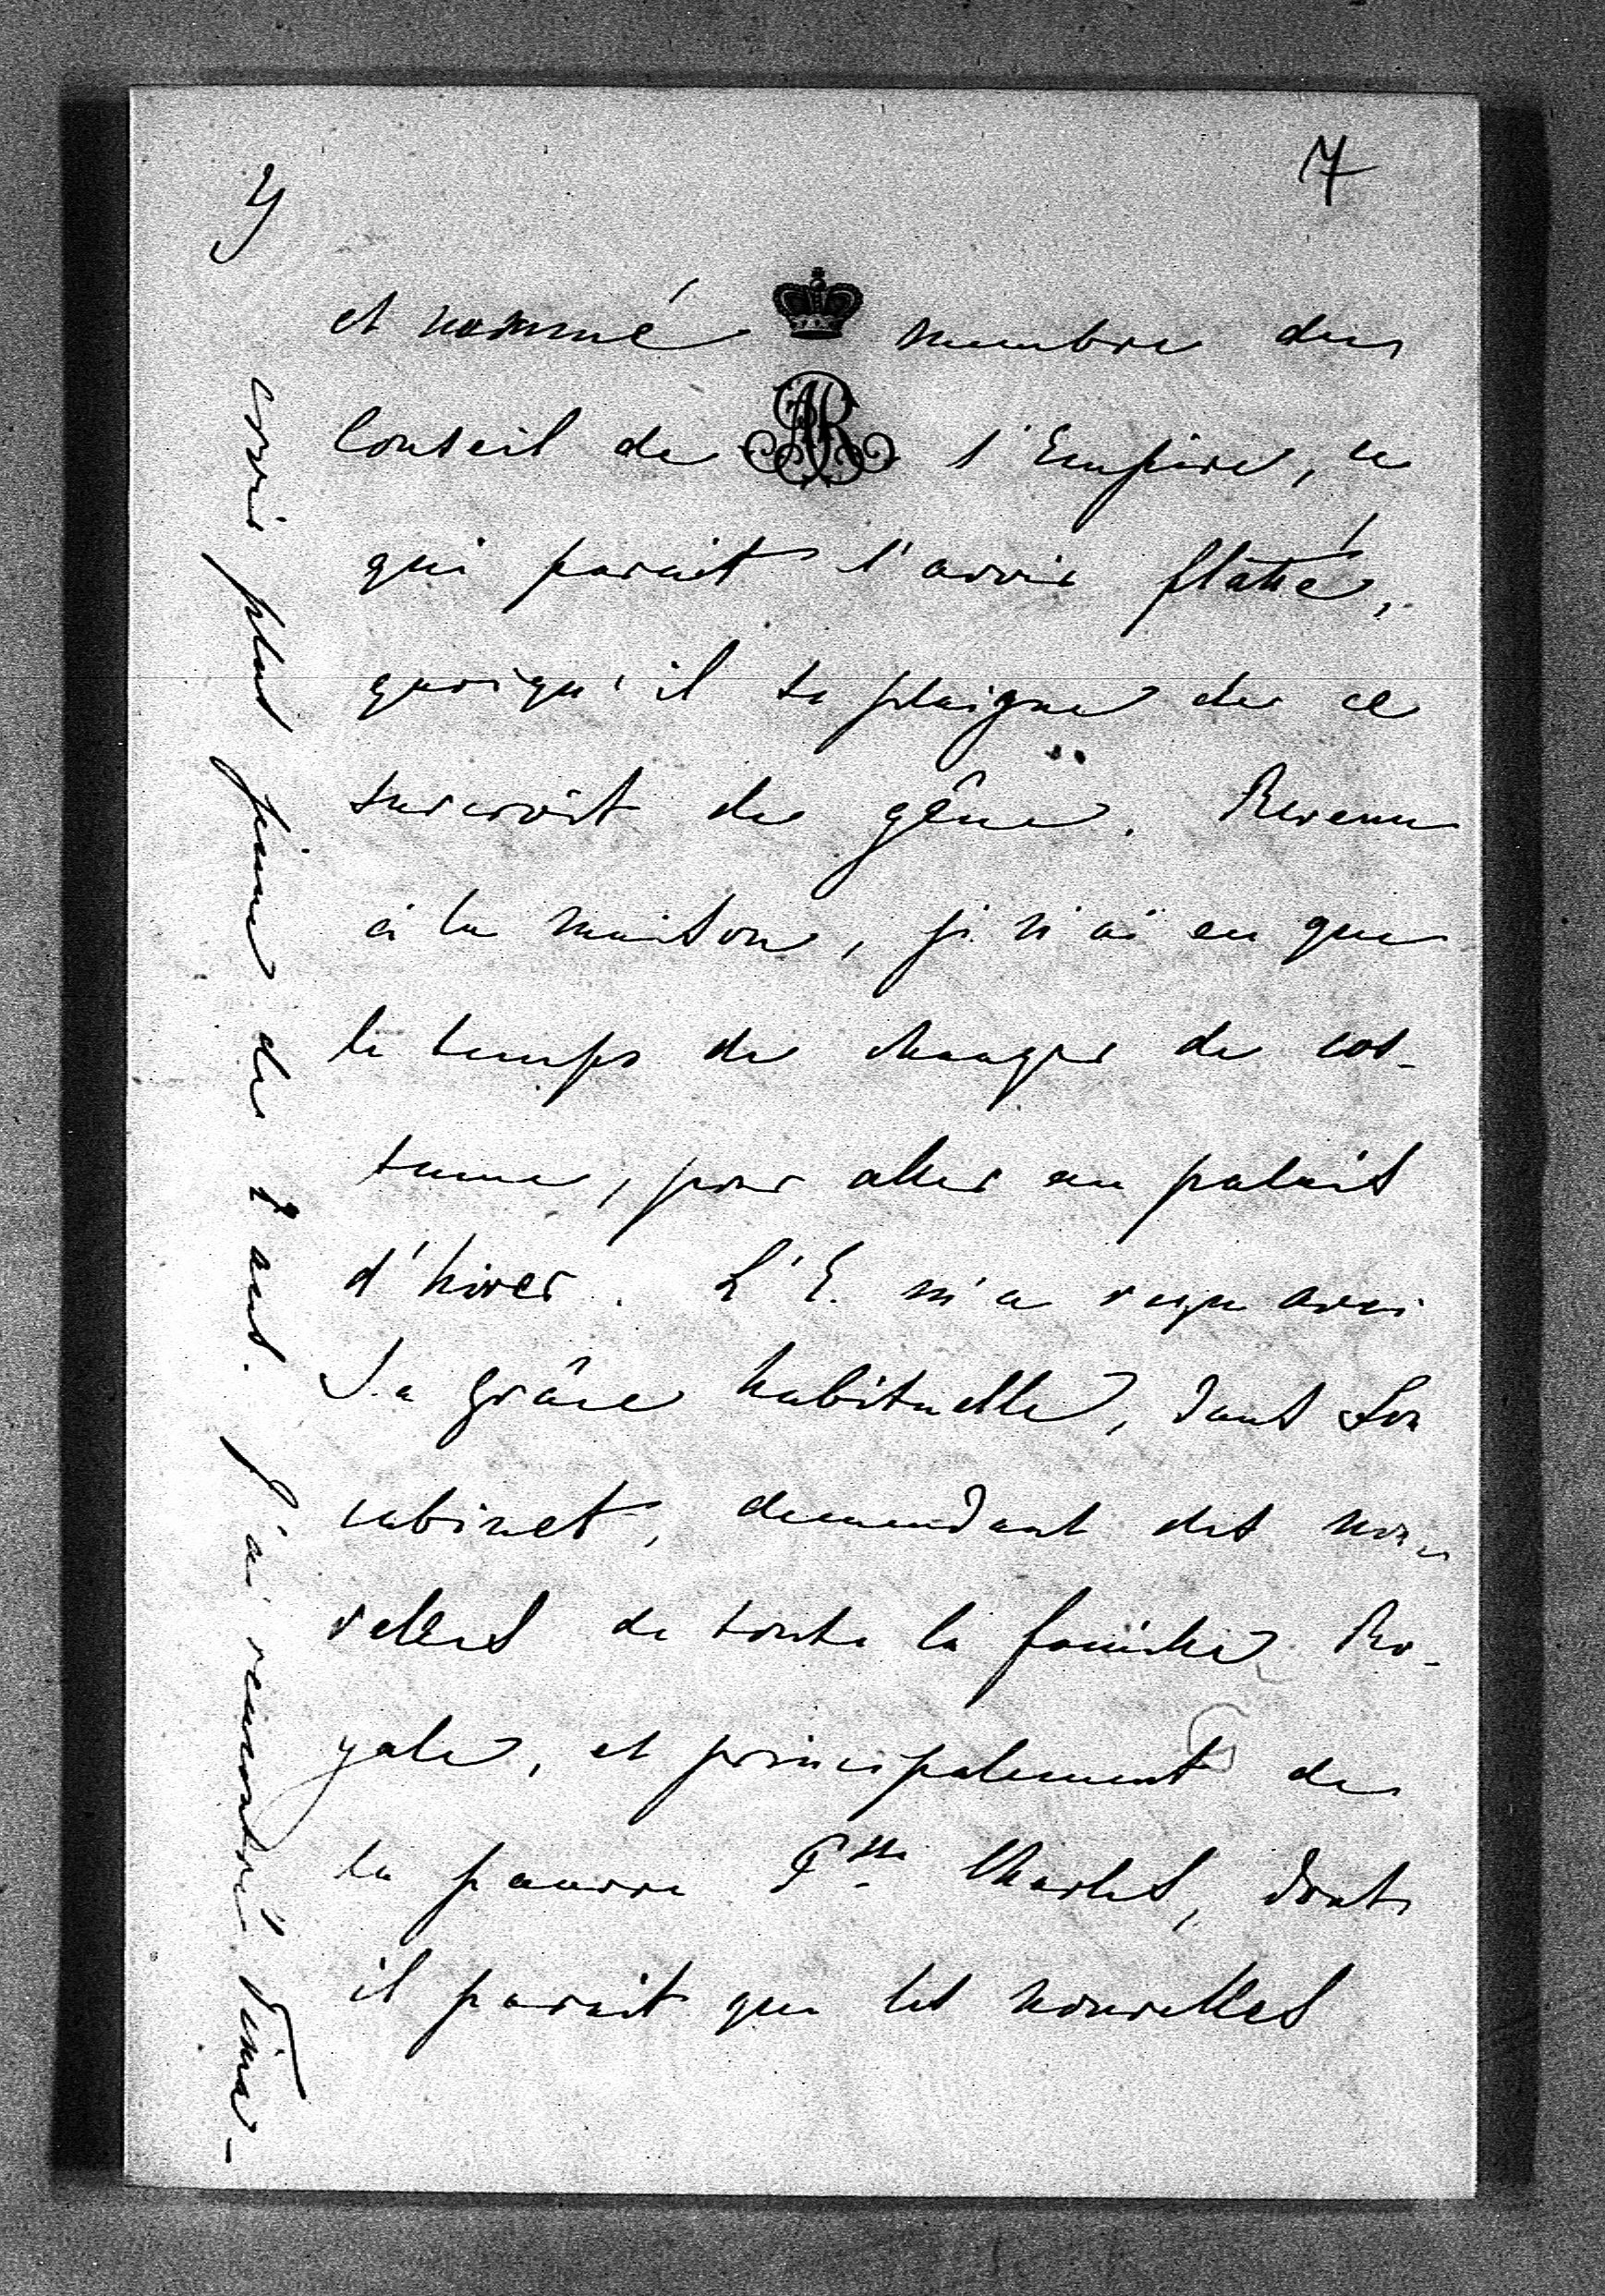 7
y
et nommé membre du
Conseil de l'Empire, ce
qui parait l'avoir flatté,
quoiqu'il se plaigne de ce
surcroit de gêne. Revenu
à la maison, je n'ai eu que
le temps de changer de cos-
tume, pour aller au palais
d'hiver. L'E. m'a reçu avec
Sa grâce habituelle, dans Son
cabinet, demandant des nou-
velles de toute la famille Ro-
yale, et principalement de
la pauvre Pss Charles, dont
il parait que les nouvelles
voir plus jeune de ans. J'ai rencontré